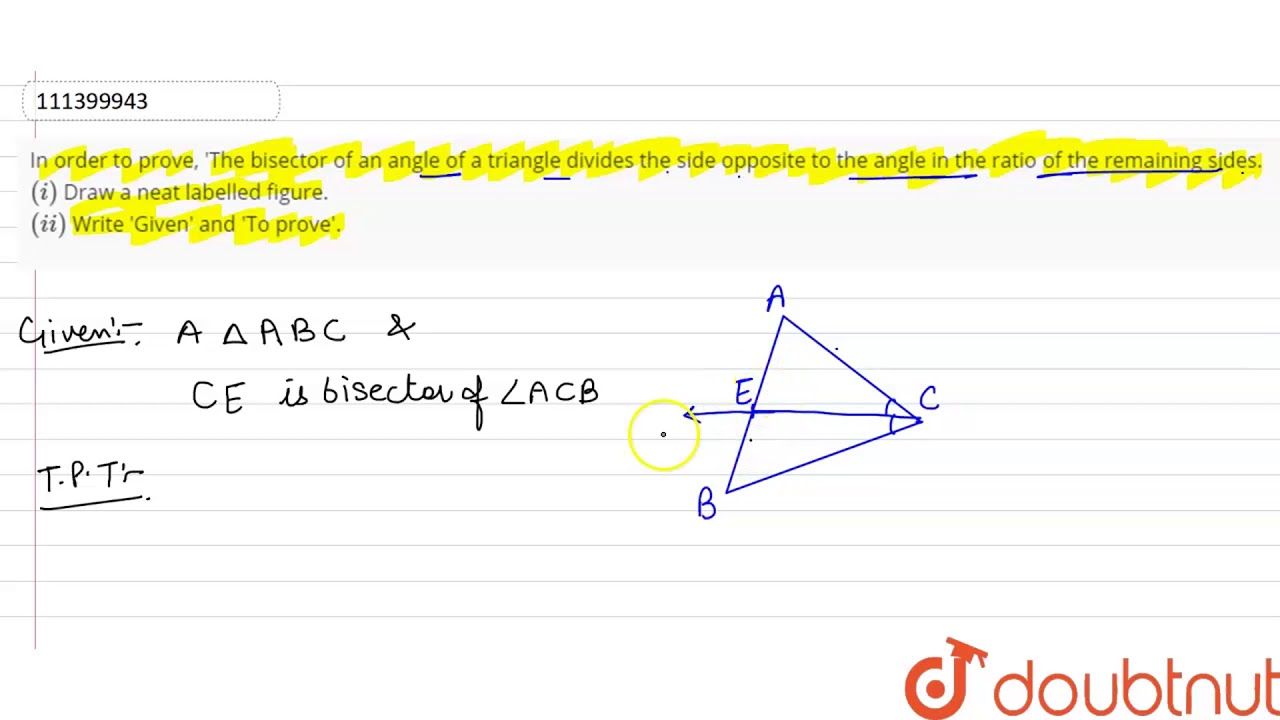 111399943
In order to prove, 'The bisector of an angle of a triangle divides the side opposite to the angle in the ratio of the remaining sides.
(i) Draw a neat labelled figure.
(ii) Write 'Given' and 'To prove'.
Given:- A △ABC &
CE is bisector of ∠ACB
T.P.T:-
A
E
C
B
doubtnut